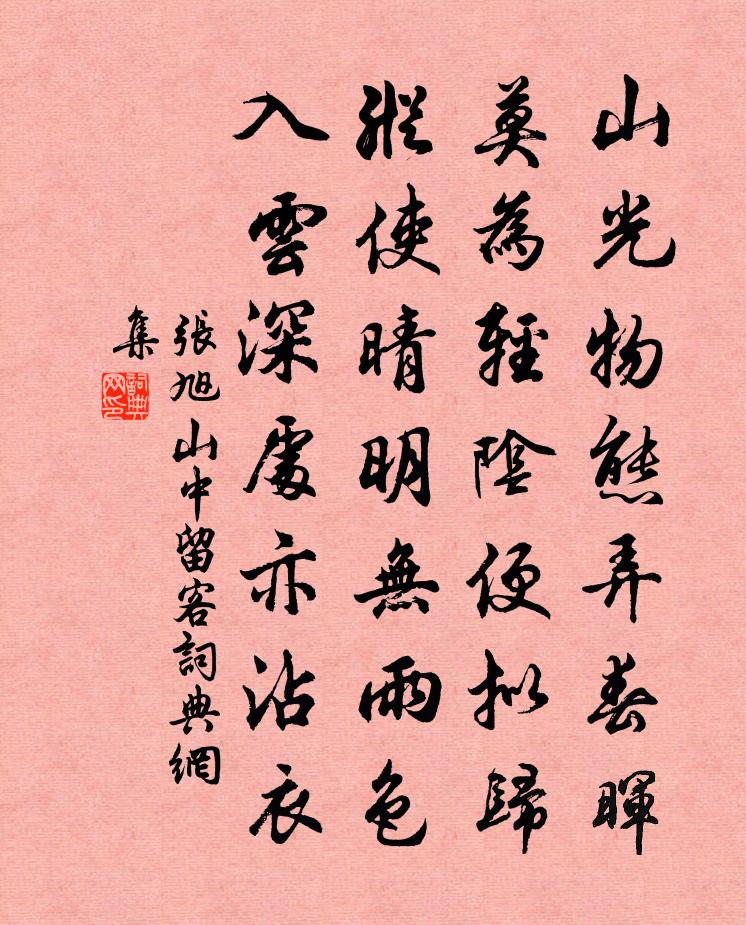 山光物態弄春暉
莫為輕陰便擬歸
縱使晴明無雨色
入雲深處亦沾衣
張旭山中留客詞典網
集
詞典
网印